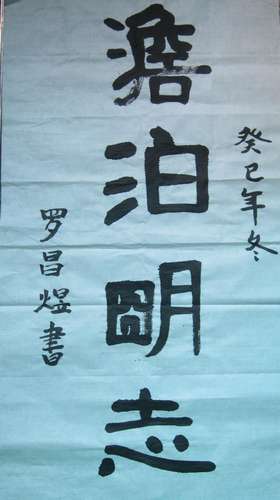 癸巳年冬
澹泊明志
罗昌煜書